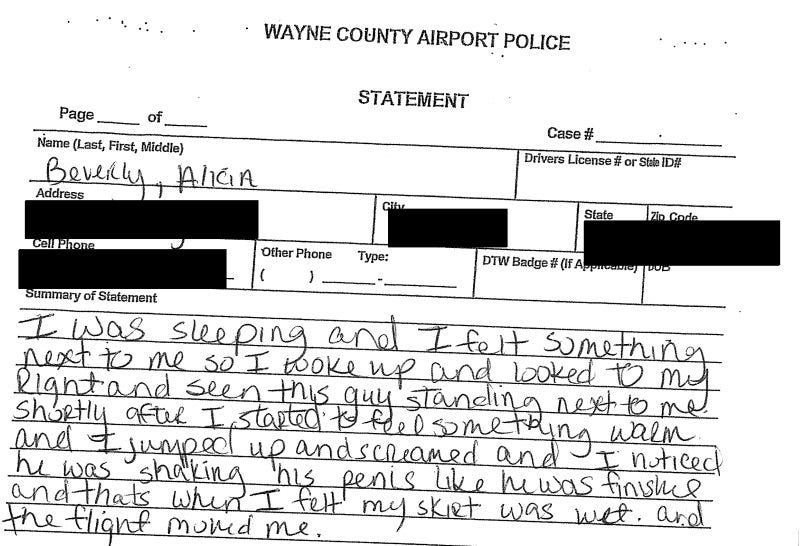 WAYNE COUNTY AIRPORT POLICE
STATEMENT
Page ____ of ____
Case # ____
Name (Last, First, Middle)
Drivers License # or State ID#
Beverly, Alicia
Address
City
State
Zip Code
Cell Phone
Other Phone Type:
( ) ____-____
DTW Badge # (If Applicable)
DOB
Summary of Statement
I was sleeping and I felt something
next to me so I woke up and looked to my
Right and seen this guy standing next to me.
Shortly after I started to feel something warm
and I jumped up and screamed and I noticed
he was shaking his penis like he was finishe
and thats when I felt my skirt was wet. and
the flight moved me.